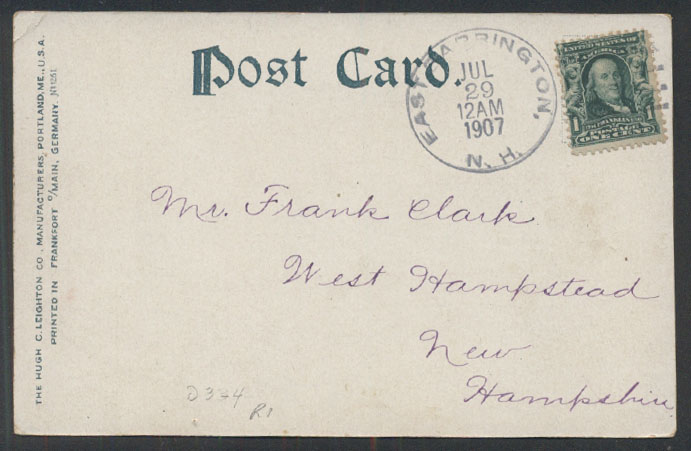 Post Card.
EAST BARRINGTON,
JUL
29
12AM
1907
N.H.
UNITED STATES OF
AMERICA
1 1
POSTAGE
ONE CENT
Mr. Frank Clark
West Hampstead
New
Hampshire
D334
R1
THE HUGH C. LEIGHTON CO., MANUFACTURERS, PORTLAND, ME., U.S.A.
PRINTED IN FRANKFORT O/MAIN, GERMANY.